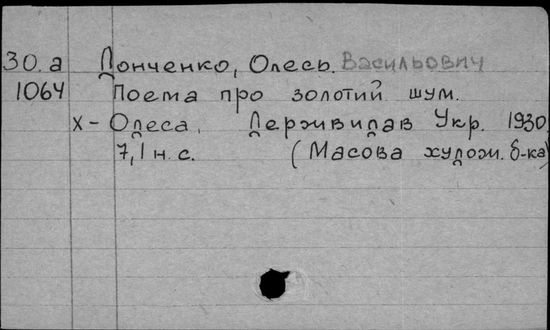 30.а Донченко, Олесь. Васильович
1064 Поема про золотий шум.
Х – Одеса, Держвидав Укр. 1930
7,1 н. с. (Масова худож. б-ка)